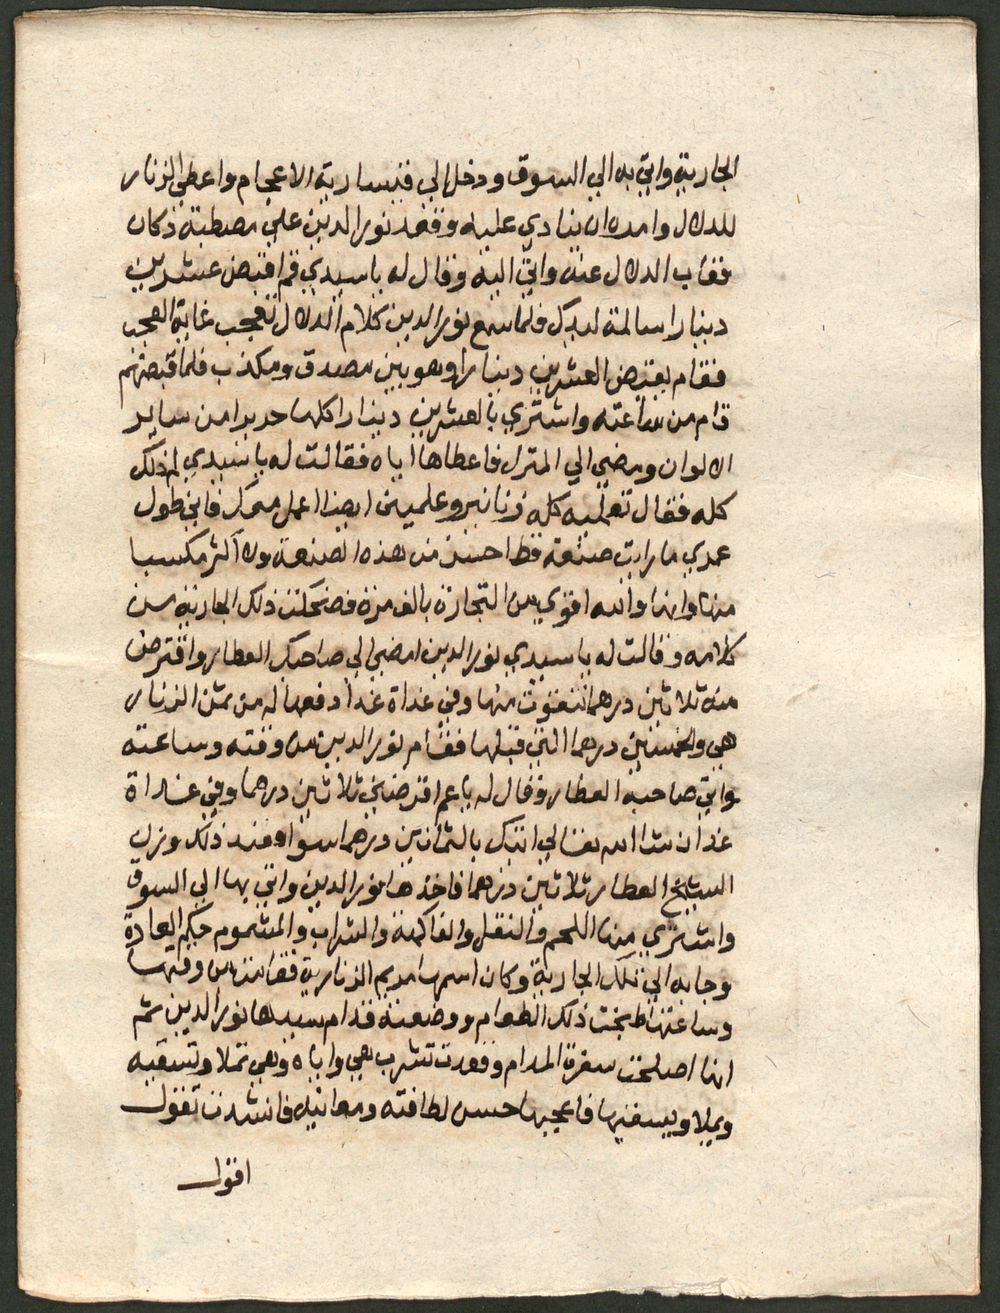 الجارية واتي به الي السوق ودخل الي قيسارية الاعجام واعطي الزنار
للدلال وامره ان ينادي عليه وقعد نور الدين علي مصطبة دكان
فغاب الدلال عنه واتي اليه وقال له ياسيدي قم اقبض عشرين
دينارا سالمة ليدك فلما سمع نور الدين كلام الدلال تعجب غاية العجب
فقام ليقبض العشرين دينارا وهو بين مصدق ومكذب فلما قبضهم
قام من ساعته واشتري بالعشرين دينارا كلها حريرا من ساير
الالوان ومضي الي المنزل فاعطاها اياه فقالت له ياسيدي لم ذلك
كله فقال تعمليه كله زنانير وعلميني ايضا اعمل معك فاني طول
عمري ما رايت صنعة قط احسن من هذه الصنعة ولا اكثر مكسبا
منها وانها والله اقوي من التجارة بالف مرة فضحكت ذلك الجارية من
كلامه وقالت له ياسيدي نور الدين امضي الي صاحبك العطار واقترض
منه ثلاثين درهما نتقوت منها وفي غداة غدا دفعها له من ثمن الزنار
هي والخمسين درهما التي قبلها فقام نور الدين من وقته وساعته
واتي صاحبه العطار وقال له ياعم اقرضني ثلاثين درهما وفي غداة
غد ان شا الله تعالي اتيك بالثمانين درهما سوا فعند ذلك وزن
الشيخ العطار ثلاثين درهما فاخذها نور الدين واتي بها الي السوق
واشتري منها اللحم والنقل والفاكهة والشراب والمشموم حكم العادة
وجا به الي تلك الجارية وكان اسمها مريم الزنارية فقامت من وقتها
وساعتها طبخت ذلك الطعام ووضعته قدام سيدها نور الدين ثم
انها اصلحت سفرة المدام وقعدت تشرب هي واياه وهي تملا وتسقيه
ويملا ويسقيها فاعجبها حسن لطافته ومعانيه فانشدت تقول
اقول